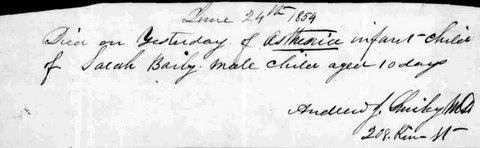 June 24th 1854
Died on Yesterday of Asthenia infant child
of Sarah Baily. male child aged 10 days
Andrew J. M.D
208. St